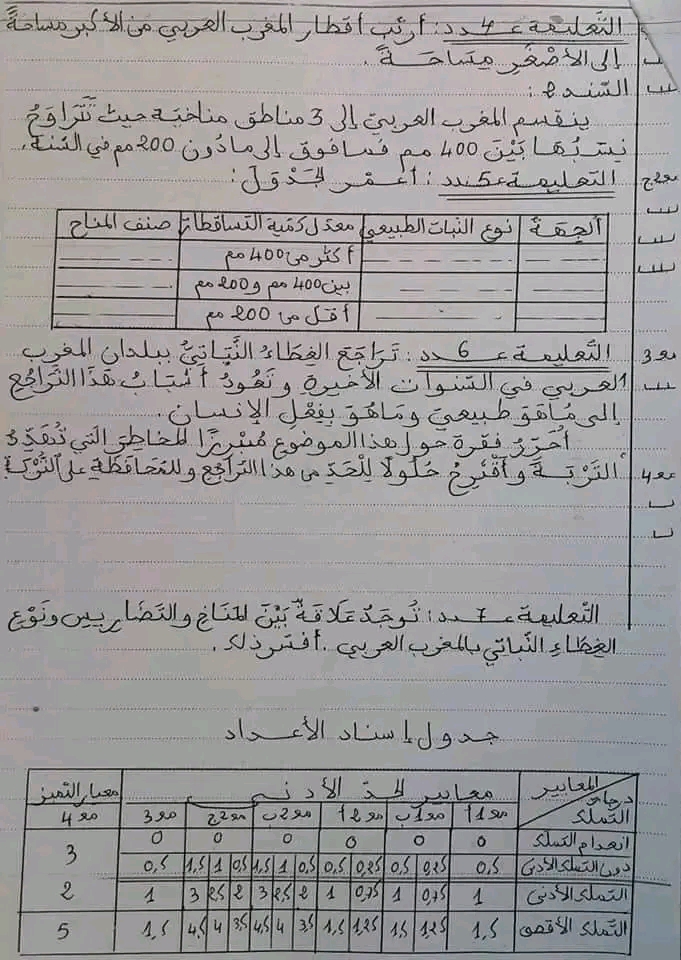 التعليمة عــ4ــدد : أرتب أقطار المغرب العربي من الأكبر مساحةً
إلى الأصْغَرِ مِسَاحَـةً .
السّند 8 :
ينقسم المغرب العربيّ إلى 3 مناطق مناخية حيث تَتَرَاوَحُ
نسبُها بَيْنَ 400 مم فما فوق إلى مادُون 200 مم في السّنة.
مع2ج التعليمة عــ5ــدد : أعمّر الجَدْوَل :
الجِهَة | نوع النبات الطبيعي | معدّل كمية التساقطات | صنف المناخ
أكثر من 400 مم
بين 400 مم و 200 مم
أقل من 200 مم
مع3 التّعليمة عــ6ــدد : تَرَاجَعَ الغِطَاءُ النَّبَاتِيُّ ببلدان المغرب
العربي في السّنوات الأخيرةِ وتَعُودُ أسْبَابُ هَذَا التَّرَاجُعِ
إلى مَاهُوَ طبيعيّ ومَاهُوَ بِفِعْلِ الإنسان .
أُحَرِّرُ فقرة حول هذا الموضوع مُبْرِزًا المخاطِرَ التي تُهَدِّدُ
مع4 التُّرْبَـةَ وأقْتَرِحُ حُلُولًا لِلْحَدِّ من هذا التراجع وللمحافظة على التُّرْبَة
التّعليمة عــ7ــدد : تُوجَدُ عَلَاقَةٌ بَيْنَ المَنَاخِ والتّضَاريس ونَوْعِ
الغِطَاءِ النّباتي بالمغرب العربي . أفسّر ذلك .
جدول إسناد الأعداد
المعايير | معايير الحدّ الأدنى | معيار التميز
درجات التملك | مع1أ | مع1ب | مع2أ | مع2ب | مع2ج | مع3 | مع4
انعدام التملك | 0 | 0 | 0 | 0 | 0 | 0 | 3
دون التملك الأدنى | 0,5 | 0,25 | 0,5 | 0,25 | 0,5 | 0,5 | 1 | 1,5 | 0,5 | 1 | 1,5 | 0,5
التملك الأدنى | 1 | 0,75 | 1 | 0,75 | 1 | 2 | 2,5 | 3 | 2 | 2,5 | 3 | 1 | 2
التملك الأقصى | 1,5 | 1,25 | 1,5 | 1,25 | 1,5 | 3,5 | 4 | 4,5 | 3,5 | 4 | 4,5 | 1,5 | 5